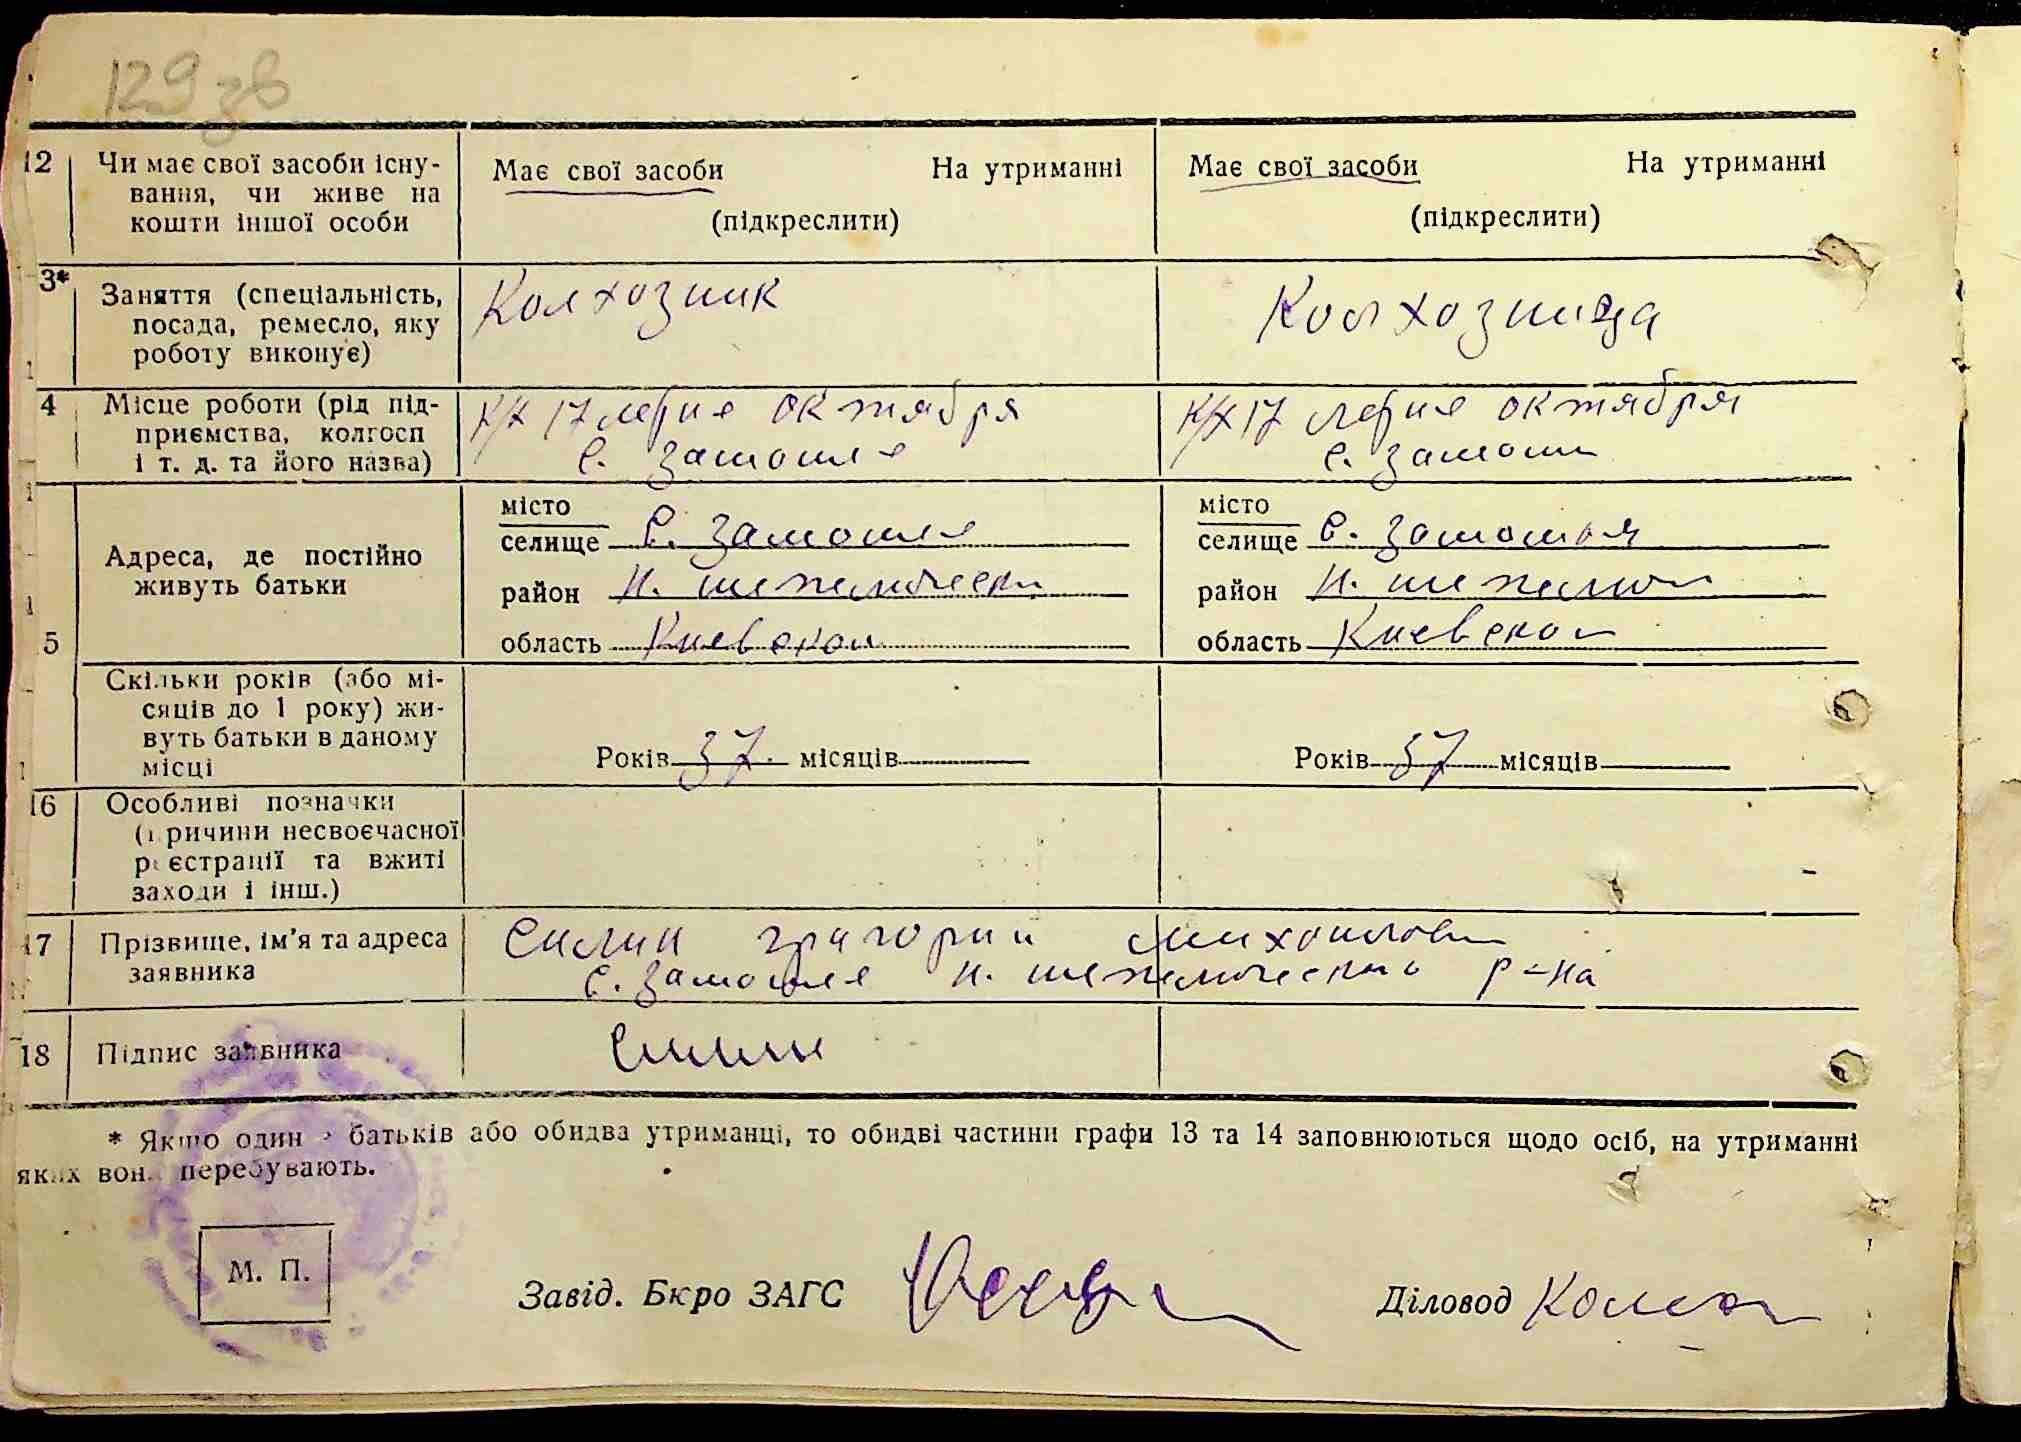 129 зв
12 Чи має свої засоби існу- Має свої засоби На утриманні Має свої засоби На утриманні
вання, чи живе на
кошти іншої особи (підкреслити) (підкреслити)
3* Заняття (спеціальність, Колхозник Колхозница
посада, ремесло, яку
роботу виконує)
4 Місце роботи (рід під- К/х 17 летие октября К/х 17 летие октября
приємства, колгосп
і т. д. та його назва) с. Замошье с. Замошье
5 Адреса, де постійно
живуть батьки
місто місто
селище с. Замошье селище с. Замошья
район район
область Киевская область Киевская
Скільки років (або мі-
сяців до 1 року) жи-
вуть батьки в даному
місці
Років 37 місяців Років 37 місяців
16 Особливі позначки
(причини несвоєчасної
реєстрації та вжиті
заходи і інш.)
17 Прізвище, ім'я та адреса Силин григорий михайлович
заявника с. Замошье р-на
18 Підпис заявника Силин
* Якщо один з батьків або обидва утриманці, то обидві частини графи 13 та 14 заповнюються щодо осіб, на утриманні
яких вони перебувають.
М. П.
Завід. Бюро ЗАГС Діловод